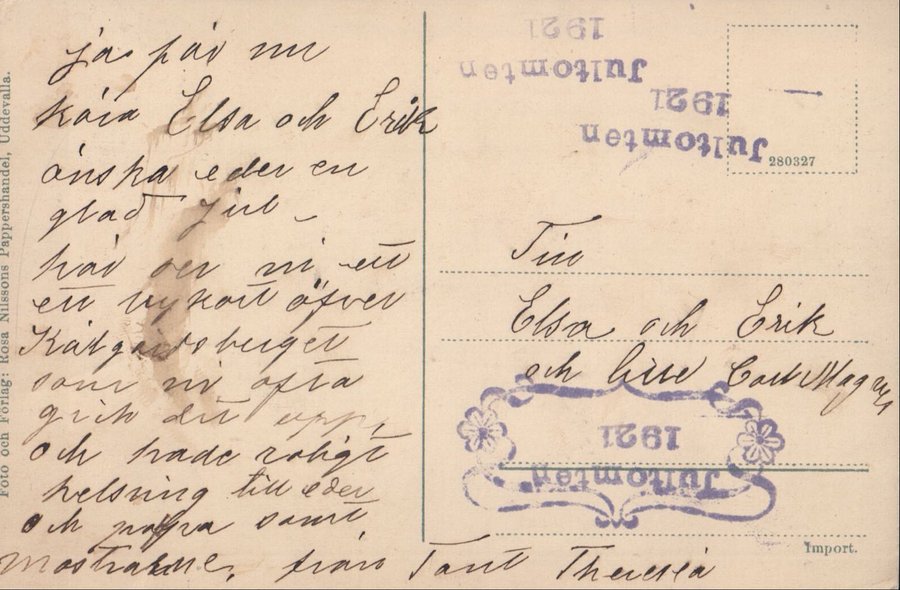 ja får nu
kära Elsa och Erik
önska eder en
glad Jul
här ser ni ett
ett vykort öfver
som ni ofta
gick dit upp,
och hade roligt
helsning till eder
och pappa samt
från Tant Theresia
Foto och Förlag: Rosa Nilssons Pappershandel, Uddevalla.
Jultomten
1921
Jultomten
1921
280327
Till
Elsa och Erik
och lille Carl Magnus
Jultomten
1921
Import.